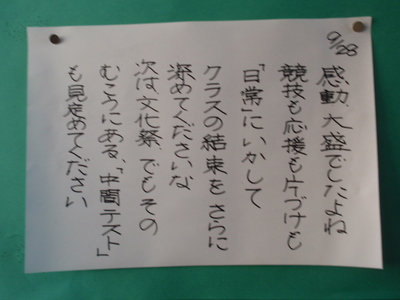 9/28
感動、大盛でしたよね
競技も応援も片づけも
「日常」にいかして
クラスの結束をさらに
深めてくださいな
次は文化祭、でもその
むこうにある、「中間テスト」
も見定めてください